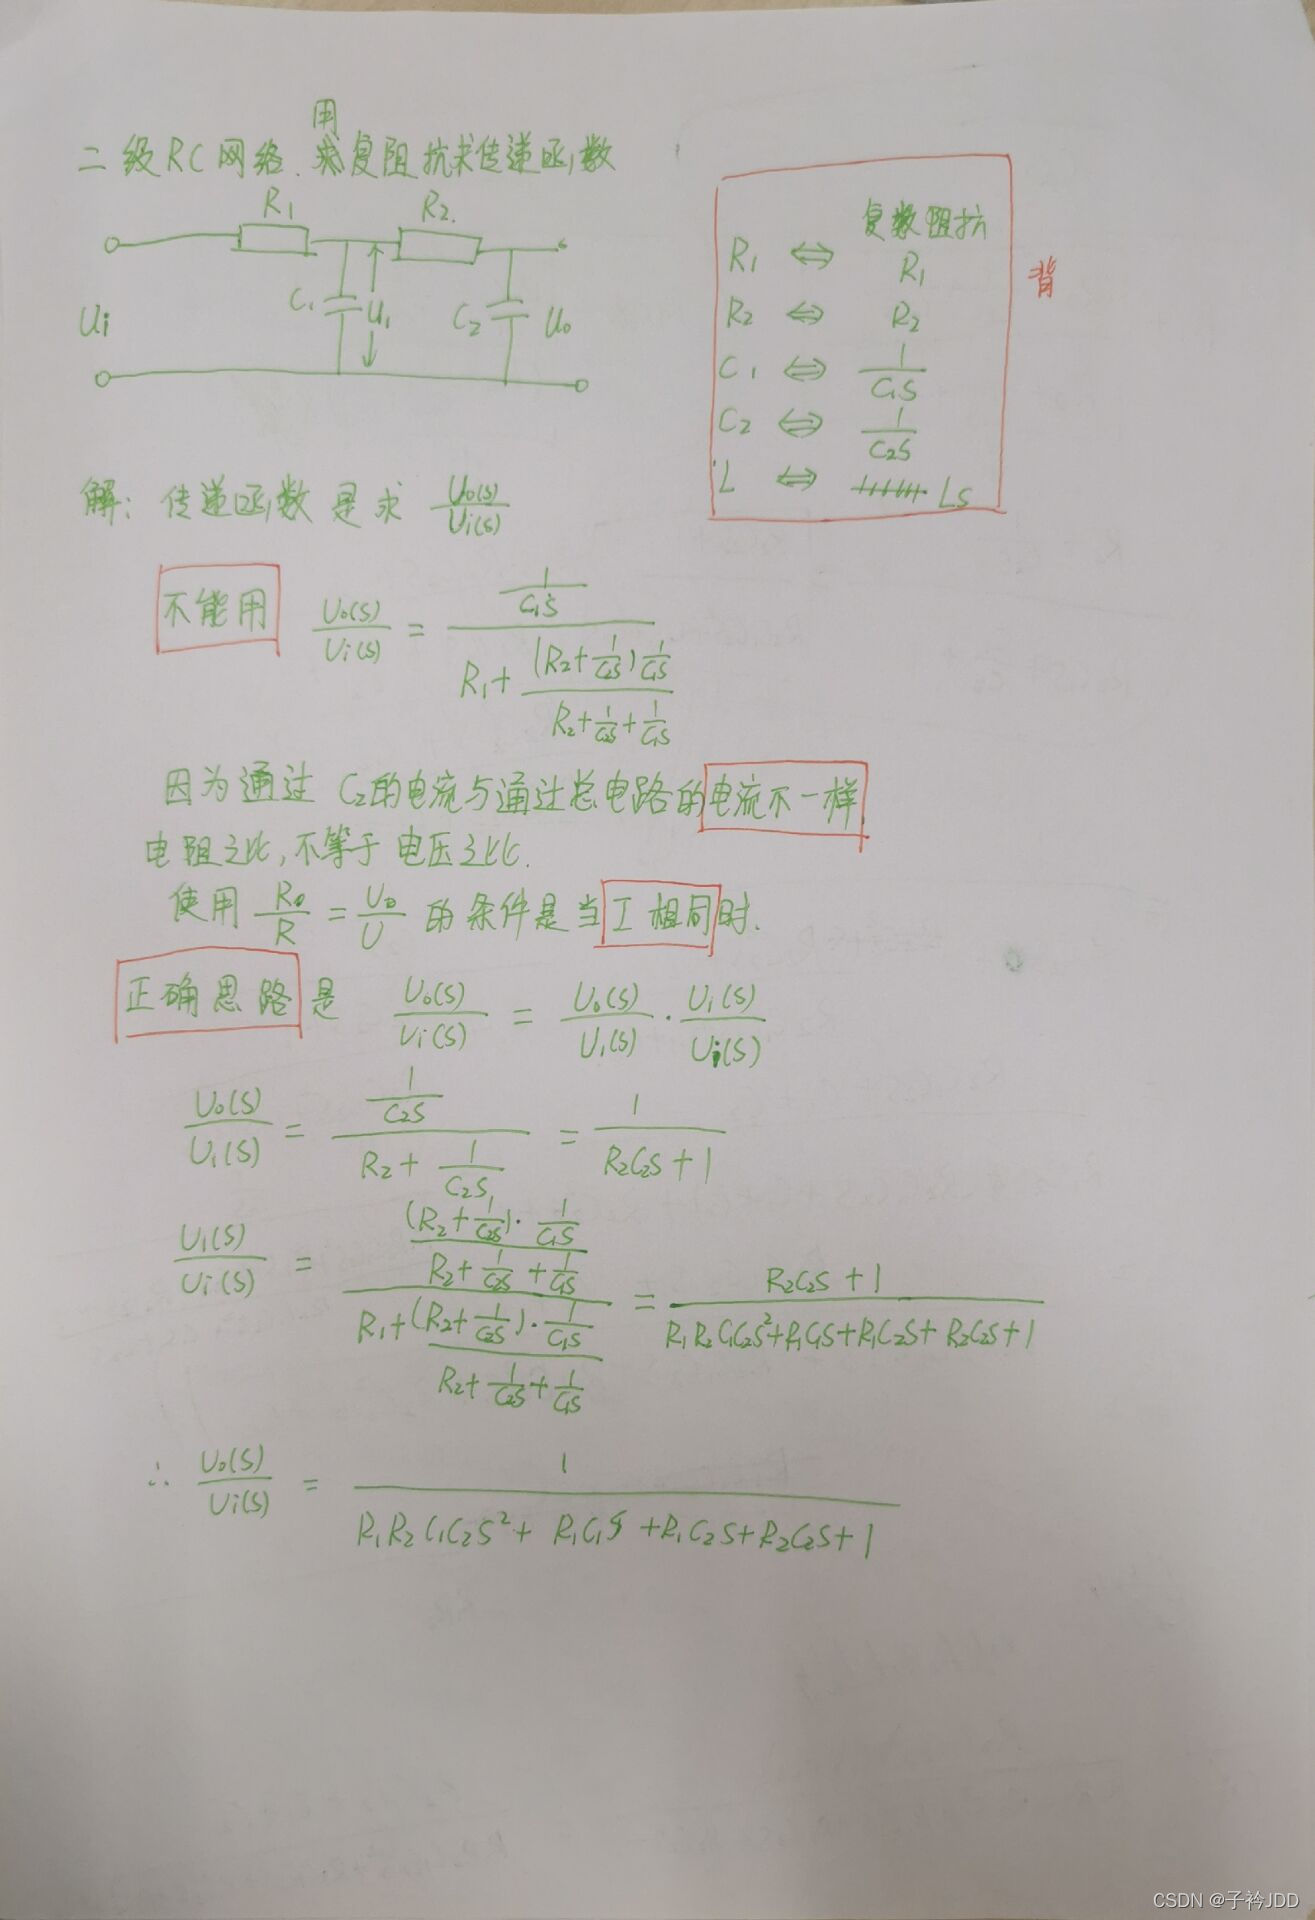 用
二级RC网络、求复阻抗求传递函数
R1 R2
Ui C1 U1 C2 Uo
复数阻抗
R1 ⇔ R1
R2 ⇔ R2
C1 ⇔ 1/(C1S)
C2 ⇔ 1/(C2S)
L ⇔ LS
背
解: 传递函数是求 Uo(s)/Ui(s)
不能用 Uo(s)/Ui(s) = (1/(C1S)) / (R1+ ((R2+1/(C2S)) 1/(C1S)) / (R2+1/(C2S)+1/(C1S)))
因为通过 C2的电流与通过总电路的电流不一样
电阻之比,不等于电压之比.
使用 Ro/R = Uo/U 的条件是当 I 相同时.
正确思路是 Uo(s)/Ui(s) = Uo(s)/U1(s) · U1(s)/Ui(s)
Uo(s)/U1(s) = (1/(C2S)) / (R2+1/(C2S)) = 1/(R2C2S+1)
U1(s)/Ui(s) = (((R2+1/(C2S))·1/(C1S)) / (R2+1/(C2S)+1/(C1S))) / (R1+((R2+1/(C2S))·1/(C1S)) / (R2+1/(C2S)+1/(C1S))) = (R2C2S+1) / (R1R2C1C2S²+R1C1S+R1C2S+R2C2S+1)
∴ Uo(s)/Ui(s) = 1 / (R1R2C1C2S²+R1C1S+R1C2S+R2C2S+1)
CSDN @子衿JDD